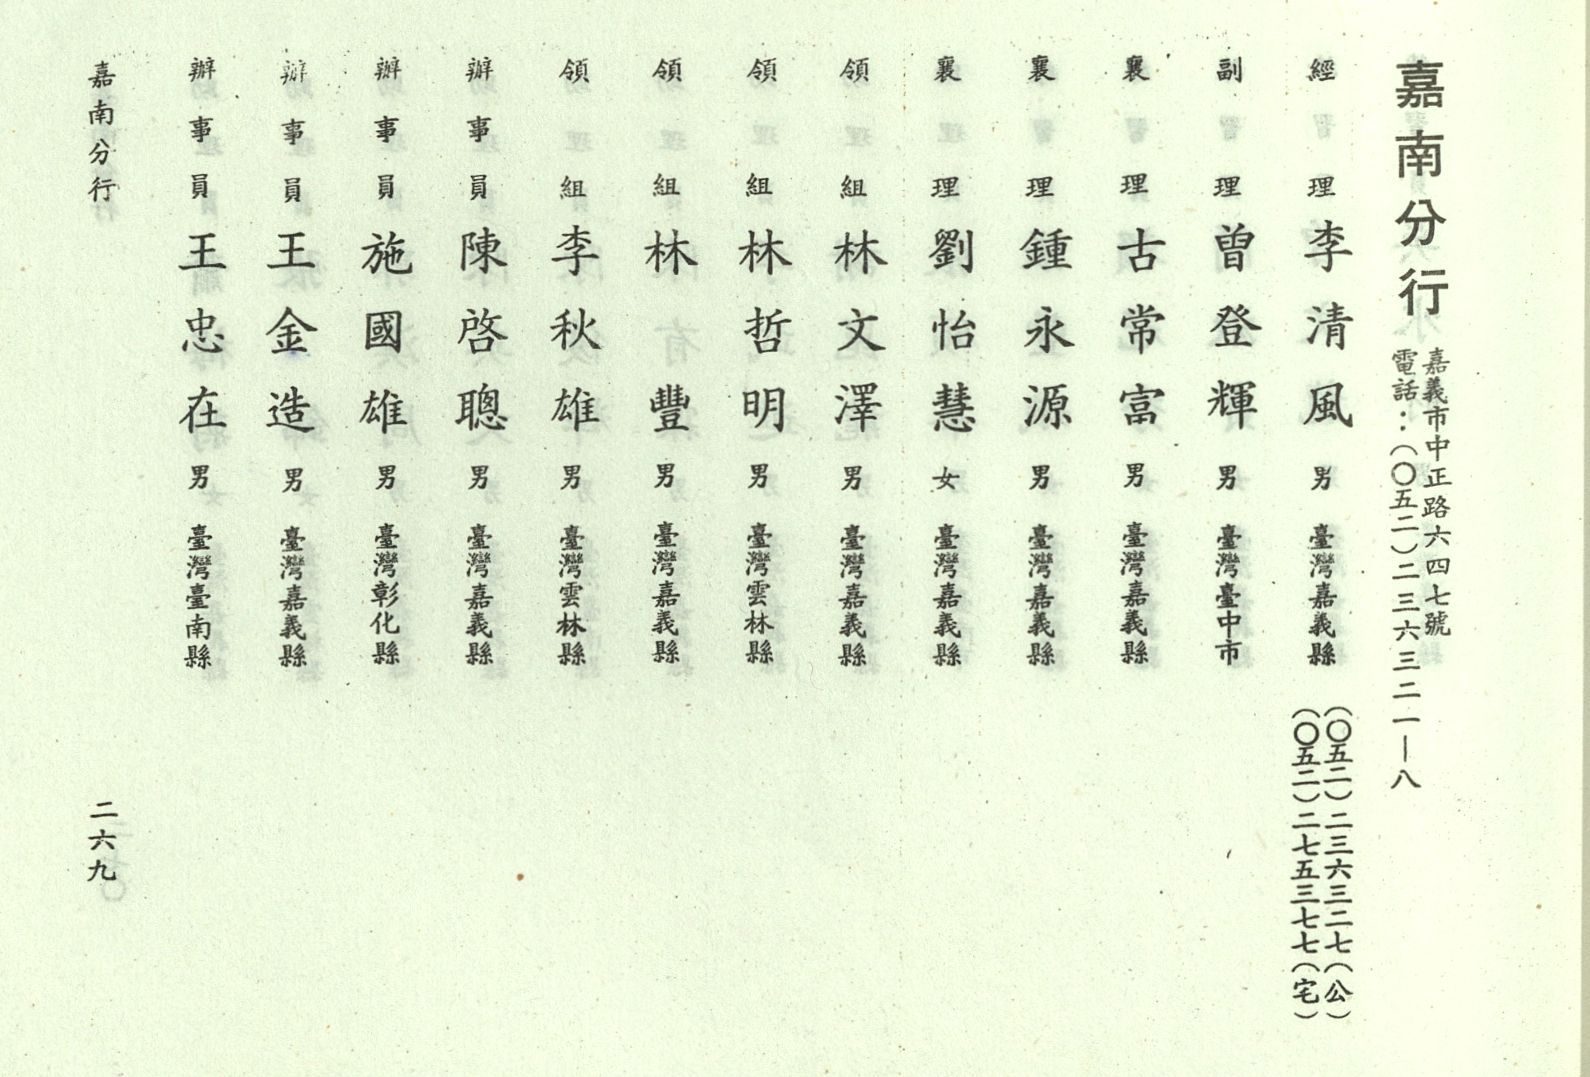 嘉南分行
嘉義市中正路六四七號
電話：(〇五二)二三六三二一—八
經理 李清風 男 臺灣嘉義縣 (〇五二)二三六三二七(公)
(〇五二)二七五三七七(宅)
副理 曾登輝 男 臺灣臺中市
襄理 古常富 男 臺灣嘉義縣
襄理 鍾永源 男 臺灣嘉義縣
襄理 劉怡慧 女 臺灣嘉義縣
領組 林文澤 男 臺灣嘉義縣
領組 林哲明 男 臺灣雲林縣
領組 林豐 男 臺灣嘉義縣
領組 李秋雄 男 臺灣雲林縣
辦事員 陳啓聰 男 臺灣嘉義縣
辦事員 施國雄 男 臺灣彰化縣
辦事員 王金造 男 臺灣嘉義縣
辦事員 王忠在 男 臺灣臺南縣
嘉南分行
二六九